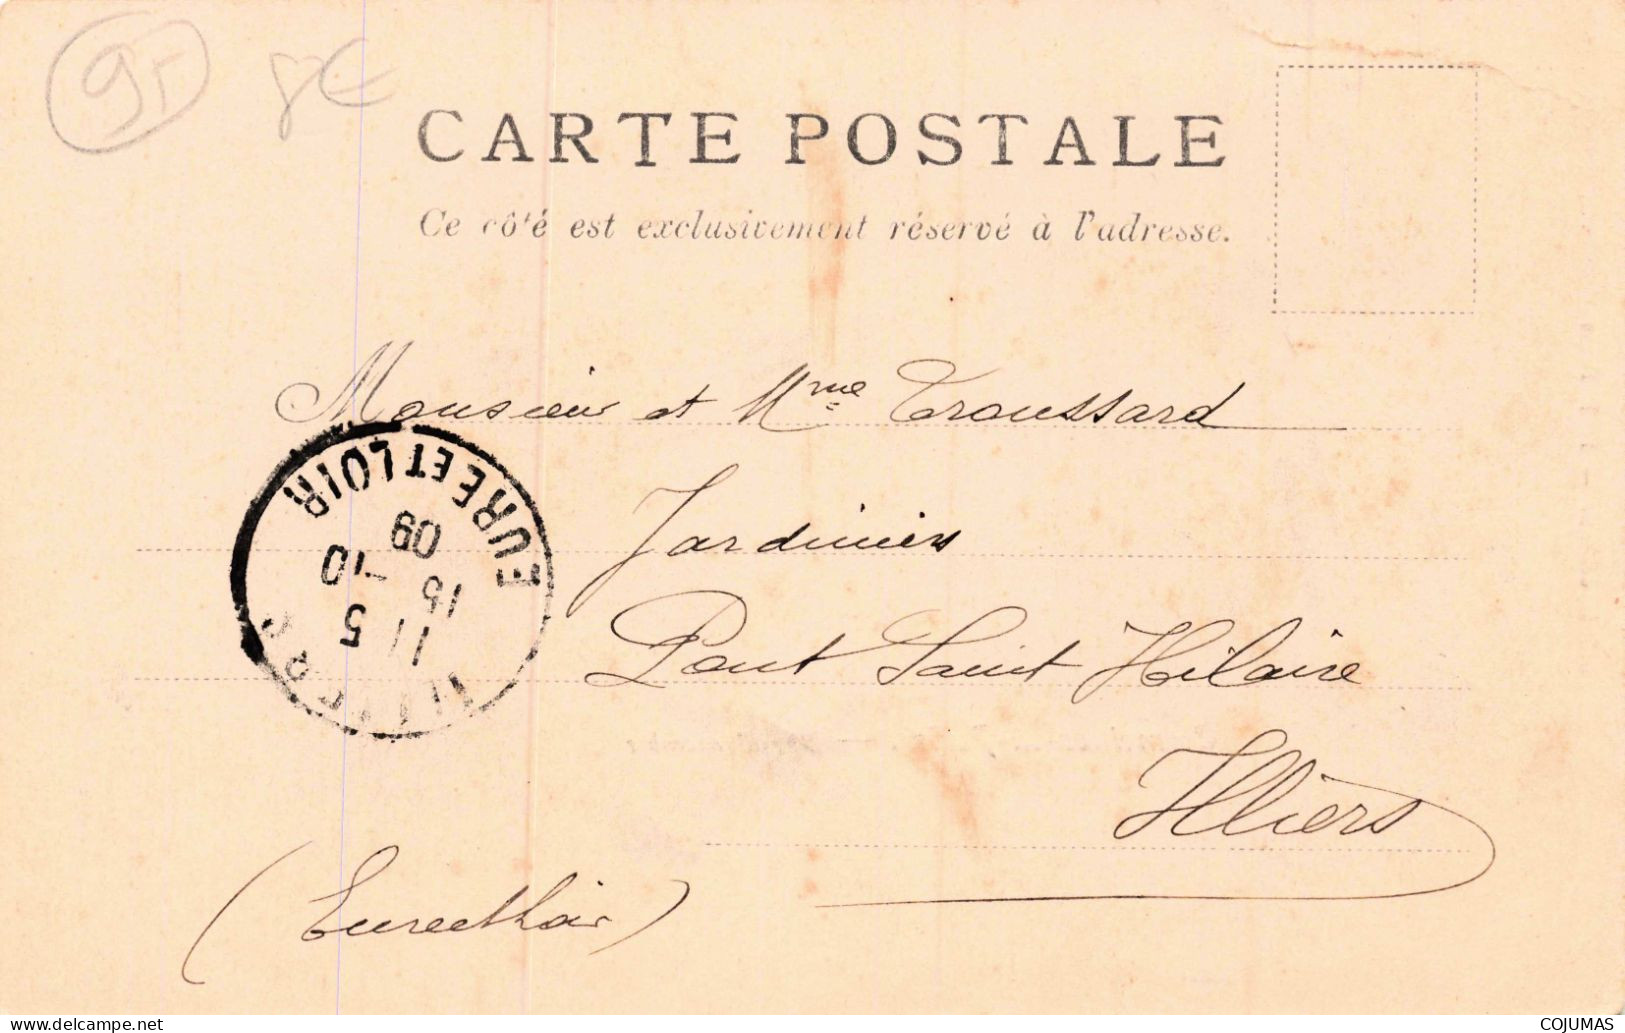 95 8€
CARTE POSTALE
Ce côté est exclusivement réservé à l'adresse.
Monsieur et Mme Troussard
Jardiniers
Pont Saint Hilaire
Illiers
(Eure et Loir)
EURE ET LOIR
09
15 -10
11 5
ILLIERS
www.delcampe.net
COJUMAS